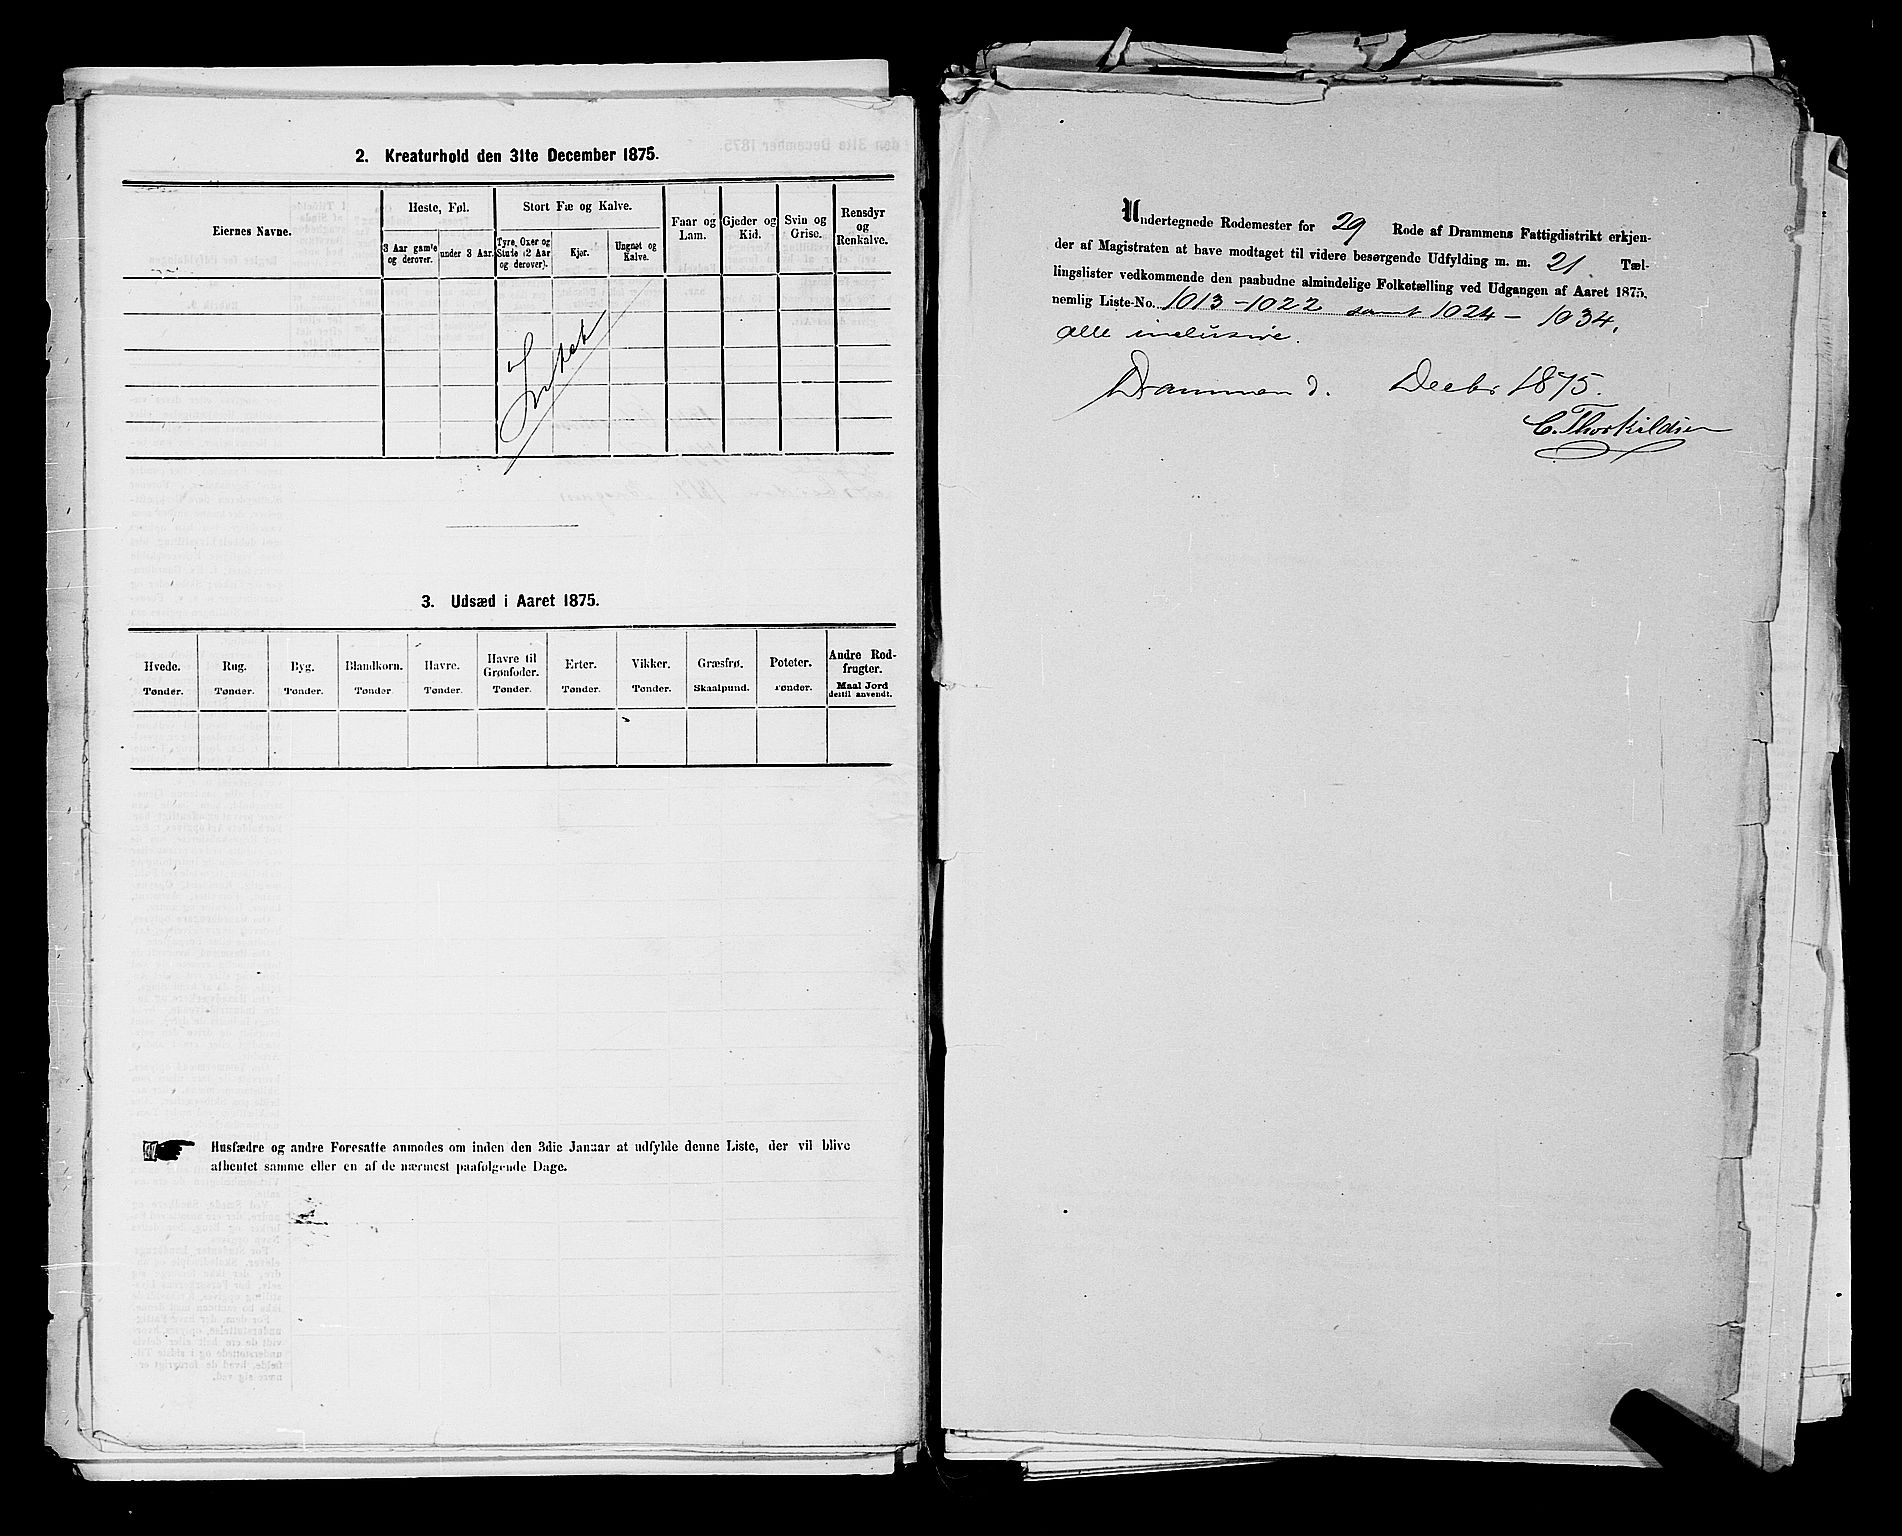 2. Kreaturhold den 31te December 1875.
Eiernes Navne.
Heste, Føl.
3 Aar gamle og derover.
under 3 Aar.
Stort Fæ og Kalve.
Tyre, Oxer og Stute (2 Aar og derover).
Kjør.
Ungnøt og Kalve.
Faar og Lam.
Gjeder og Kid.
Svin og Grise.
Rensdyr og Renkalve.
Intet
3. Udsæd i Aaret 1875.
Hvede. Tønder.
Rug. Tønder.
Byg. Tønder.
Blandkorn. Tønder
Havre. Tønder.
Havre til Grønfoder. Tønder.
Erter. Tønder.
Vikker. Tønder.
Græsfrø. Skaalpund.
Poteter. Tønder.
Andre Rodfrugter. Maal Jord dertil anvendt.
Husfædre og andre Foresatte anmodes om inden den 3die Januar at udfylde denne Liste, der vil blive
afhentet samme eller en af de nærmest paafølgende Dage.
Undertegnede Rodemester for 29 Rode af Drammens Fattigdistrikt erkjen-
der af Magistraten at have modtaget til videre besørgende Udfylding m. m. 21. Tæl-
lingslister vedkommende den paabudne almindelige Folketælling ved Udgangen af Aaret 1875,
nemlig Liste-No. 1013-1022 samt 1024 - 1034.
alle inclusive.
Drammen d. Decbr 1875.
C. Thorkildsen